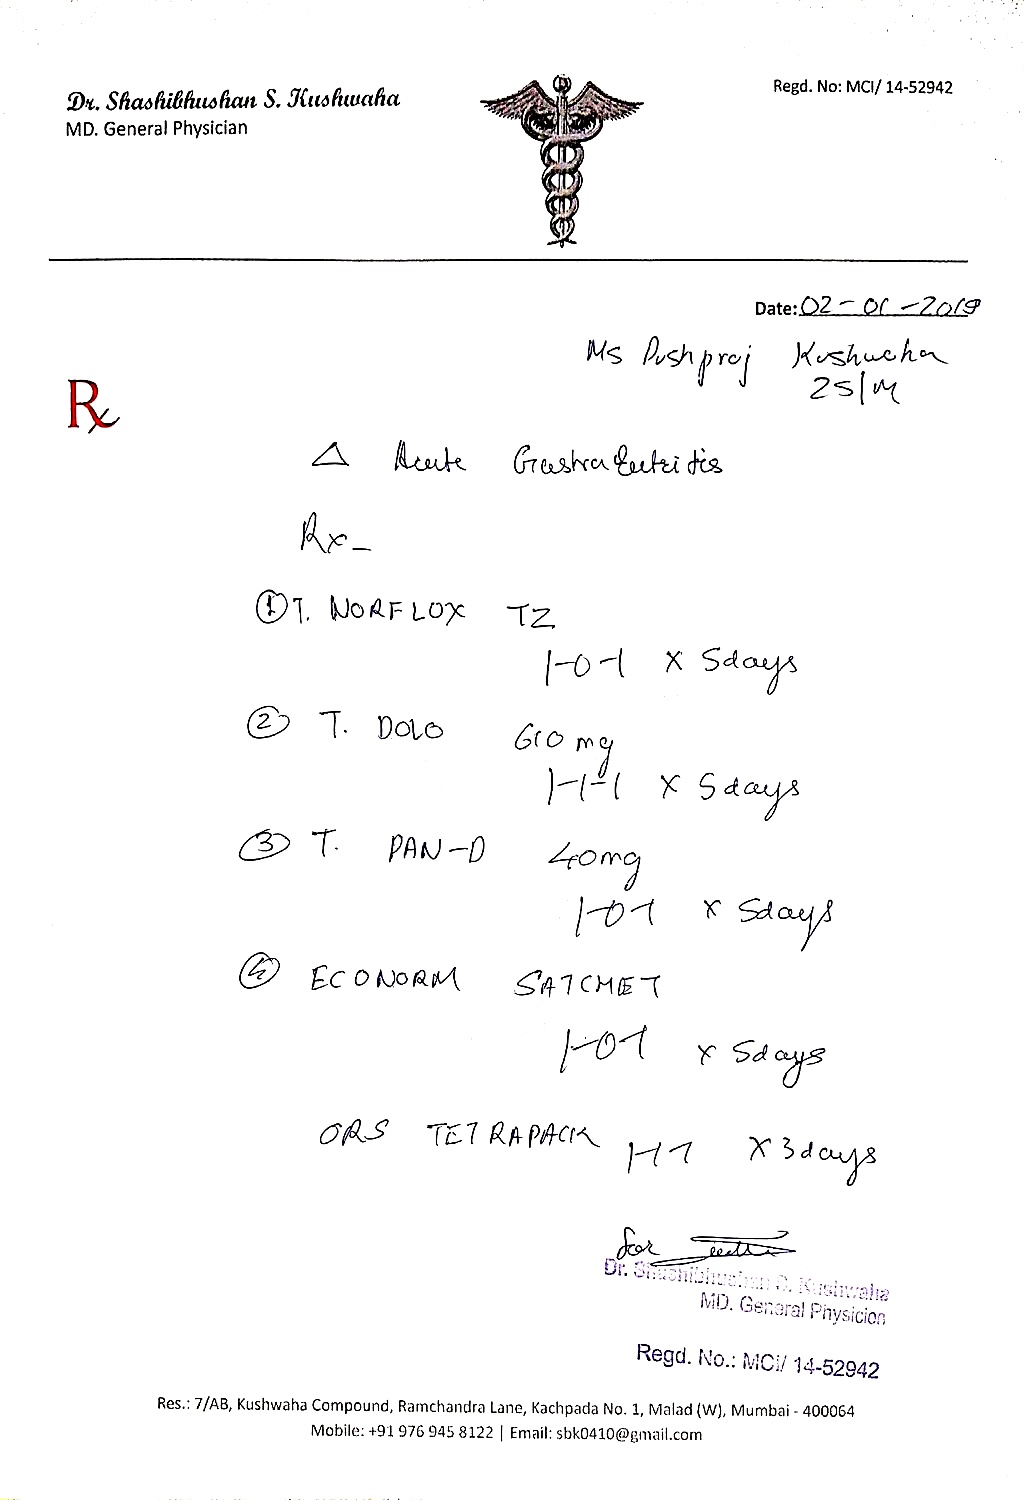 Dr. Shashibhushan S. Kushwaha
MD. General Physician
Regd. No: MCI/ 14-52942
Date: 02-01-2019
Ms Pushpraj Kushwaha
25/M
Rx
△ Acute GastraEuteitis
Rx-
① T. NORFLOX TZ
1-0-1 x 5days
② T. DOLO 610 mg
1-1-1 x 5 days
③ T. PAN-D 40mg
1-0-1 x 5days
④ ECONORM SATCHET
1-0-1 x 5days
ORS TETRAPACK 1-1-1 x 3days
for
Dr. Shashibhushan S. Kushwaha
MD. General Physician
Regd. No.: MCI/ 14-52942
Res.: 7/AB, Kushwaha Compound, Ramchandra Lane, Kachpada No. 1, Malad (W), Mumbai - 400064
Mobile: +91 976 945 8122 | Email: sbk0410@gmail.com